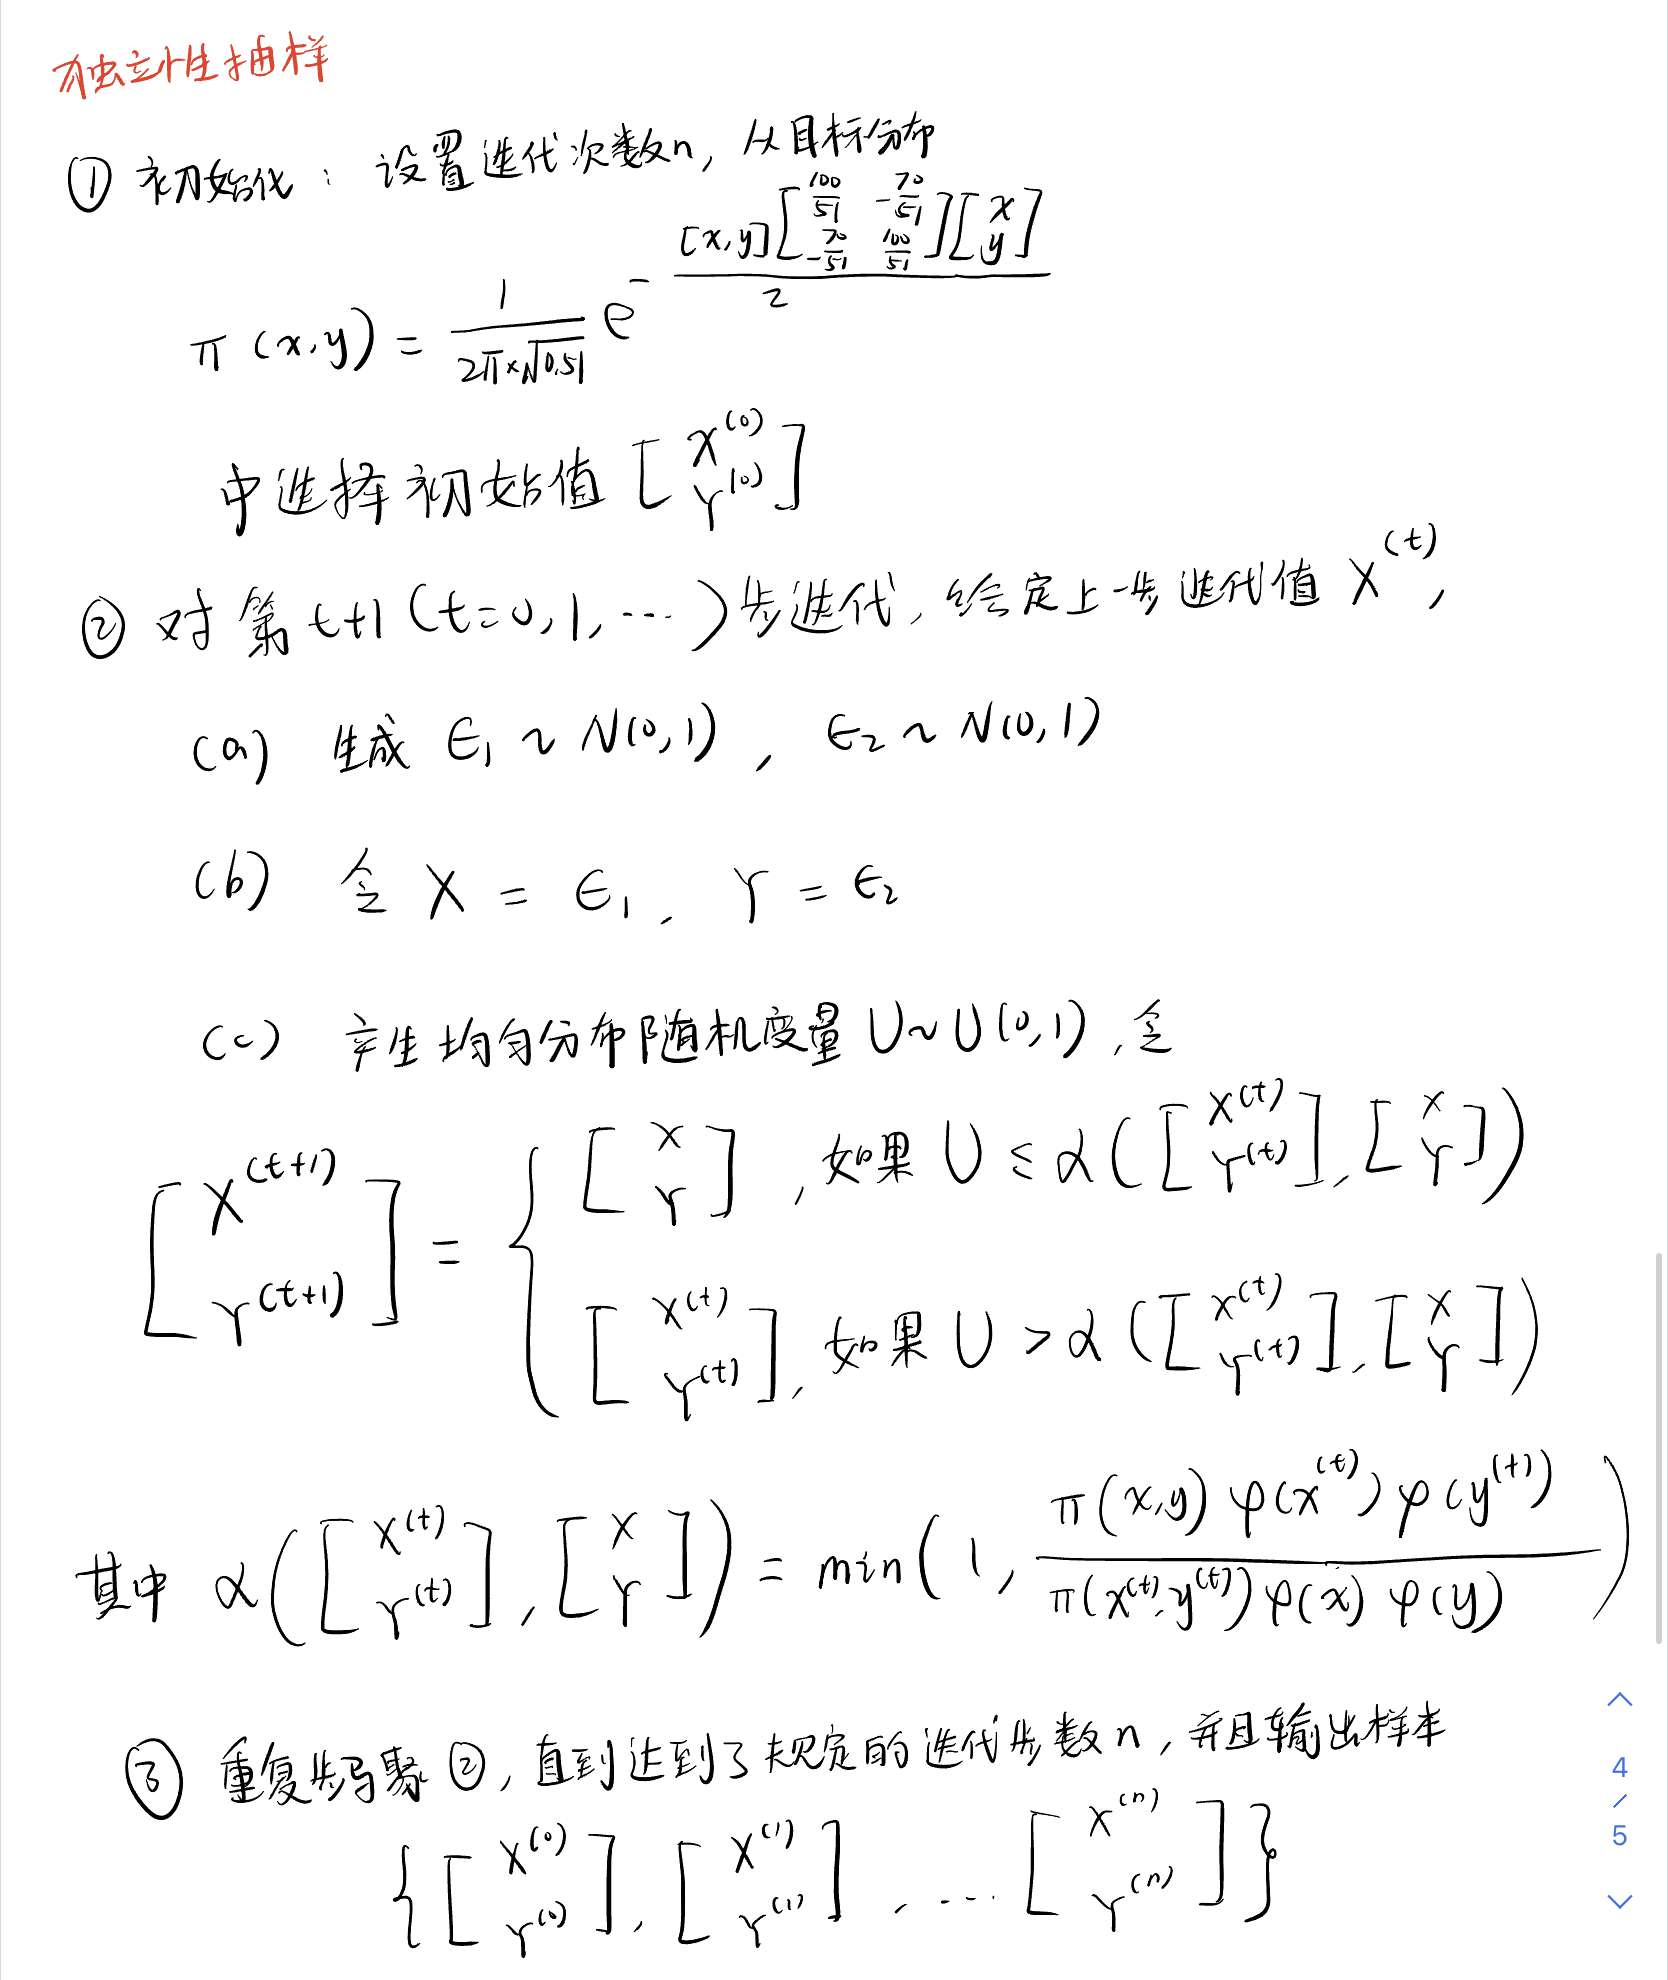 独立性抽样
① 初始化：设置迭代次数n，从目标分布
π(x,y) = \frac{1}{2π×\sqrt{0.51}} e^{-\frac{[x,y]\begin{bmatrix} \frac{100}{51} & -\frac{70}{51} \\ -\frac{70}{51} & \frac{100}{51} \end{bmatrix}\begin{bmatrix} x \\ y \end{bmatrix}}{2}}
中选择初始值 \begin{bmatrix} X^{(0)} \\ Y^{(0)} \end{bmatrix}
② 对第t+1(t=0,1,…)步迭代，给定上一步迭代值 X^{(t)},
(a) 生成 ϵ₁ ~ N(0,1), ϵ₂ ~ N(0,1)
(b) 令 X = ϵ₁, Y = ϵ₂
(c) 产生均匀分布随机变量 U~U(0,1), 令
\begin{bmatrix} X^{(t+1)} \\ Y^{(t+1)} \end{bmatrix} = \begin{cases} \begin{bmatrix} X \\ Y \end{bmatrix}, 如果 U ≤ α(\begin{bmatrix} X^{(t)} \\ Y^{(t)} \end{bmatrix}, \begin{bmatrix} X \\ Y \end{bmatrix}) \\ \begin{bmatrix} X^{(t)} \\ Y^{(t)} \end{bmatrix}, 如果 U > α(\begin{bmatrix} X^{(t)} \\ Y^{(t)} \end{bmatrix}, \begin{bmatrix} X \\ Y \end{bmatrix}) \end{cases}
其中 α(\begin{bmatrix} X^{(t)} \\ Y^{(t)} \end{bmatrix}, \begin{bmatrix} X \\ Y \end{bmatrix}) = min(1, \frac{π(x,y) φ(x^{(t)}) φ(y^{(t)})}{π(x^{(t)},y^{(t)}) φ(x) φ(y)})
③ 重复步骤②, 直到达到了规定的迭代步数n, 并且输出样本
{\begin{bmatrix} X^{(0)} \\ Y^{(0)} \end{bmatrix}, \begin{bmatrix} X^{(1)} \\ Y^{(1)} \end{bmatrix}, … \begin{bmatrix} X^{(n)} \\ Y^{(n)} \end{bmatrix}}
4
/
5